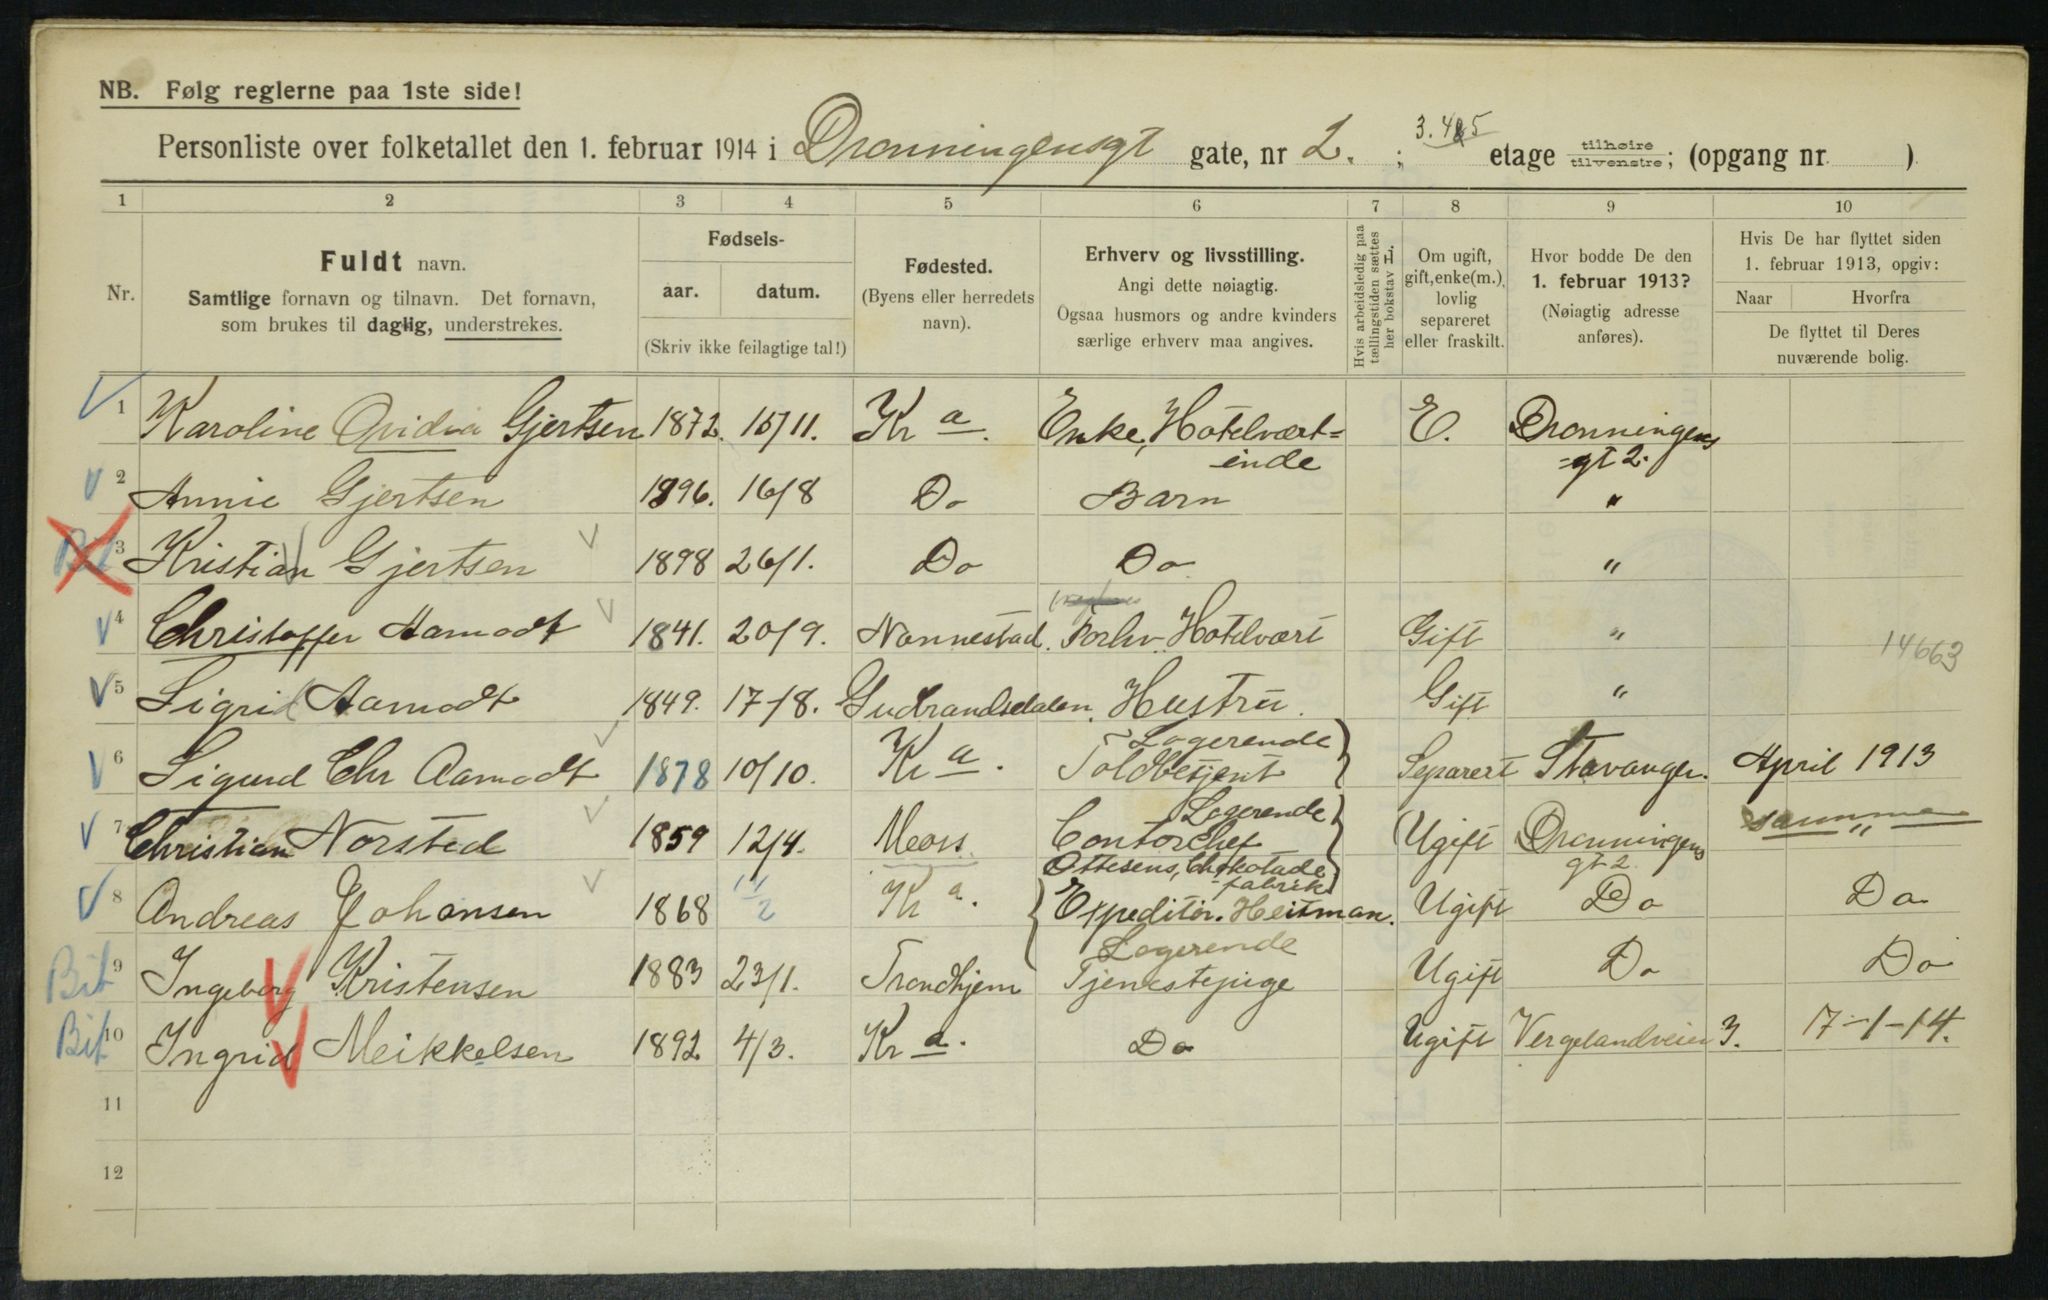 NB. Følg reglerne paa 1ste side!
Personliste over folketallet den 1. februar 1914 i Dronningensgt gate, nr 2. ; 3. 4 & 5 etage tilhøire tilvenstre; (opgang nr. )
1 2 3 4 5 6 7 8 9 10
Nr.
Fuldt navn.
Samtlige fornavn og tilnavn. Det fornavn,
som brukes til daglig, understrekes.
Fødsels-
aar. datum.
(Skriv ikke feilagtige tal!)
Fødested.
(Byens eller herredets
navn).
Erhverv og livsstilling.
Angi dette nøiagtig.
Ogsaa husmors og andre kvinders
særlige erhverv maa angives.
Hvis arbeidsledig paa
tællingstiden sættes
her bokstav L.
Om ugift,
gift, enke(m.),
lovlig
separeret
eller fraskilt.
Hvor bodde De den
1. februar 1913?
(Nøiagtig adresse
anføres).
Hvis De har flyttet siden
1. februar 1913, opgiv:
Naar Hvorfra
De flyttet til Deres
nuværende bolig.
1 Karoline Ovidia Gjertsen 1872. 15/11. Kra. Enke, Hotelvært= E. Dronningens
inde =gt 2.
2 Annie Gjertsen 1896. 16/8 Do Barn "
Bit 3 Kristian Gjertsen 1898 26/1. Do Do "
4 Christoffer Aamodt 1841. 20/9. Nannestad. Forhv. Hotelvært Gift "
14663
5 Sigrid Aamodt 1849. 17/8. Gudbrandsdalen. Hustru. Gift "
Logerende
6 Sigurd Chr Aamodt 1878 10/10. Kra. Toldbetjent Separert Stavanger. April 1913
Logerende
7 Christian Norsted 1859 12/4. Moss. Contorchef Ugift Dronningens samme "
Ottesens, Chokolade gt 2.
-fabrik
8 Andreas Johansen 1868 11/2 Kra. Expeditør. Heitman. Ugift Do Do
Logerende
Bit 9 Ingeborg Kristensen 1883 23/1. Trondhjem Tjenestepige Ugift Do Do
Bit 10 Ingrid Meikkelsen 1892 4/3. Kra. Do Ugift Vergelandveien 3. 17-1-14.
11
12